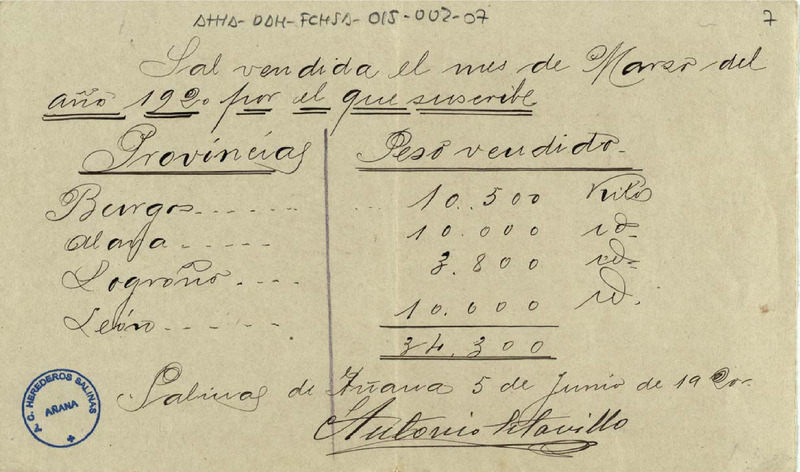 ATHA-DAH-FCHSA-015-002-07
7
Sal vendida el mes de Marzo del
año 1920 por el que suscribe
Provincias Peso vendido
Burgos 10.500 Kilos
Alava 10.000 id.
Logroño 3.800 id.
León 10.000 id.
34.300
Salinas de Añana 5 de Junio de 1920.
Antonio
C. HEREDEROS SALINAS
AÑANA